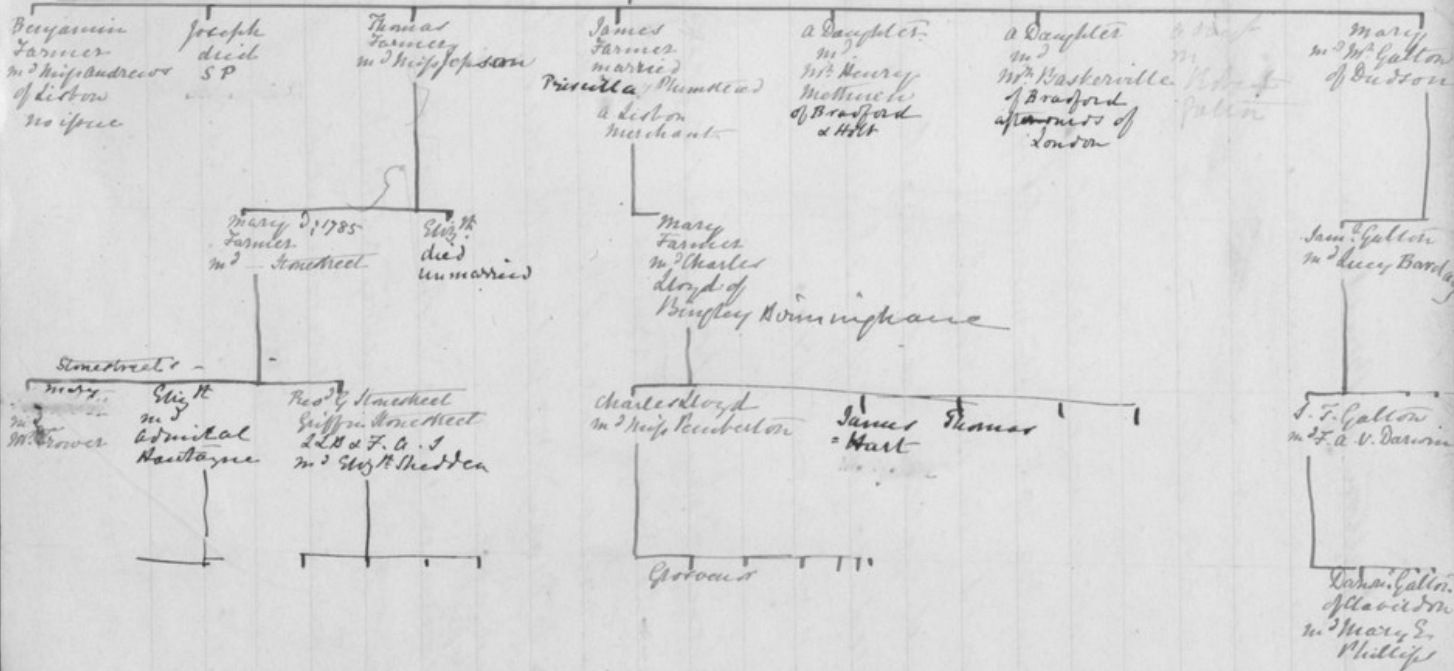 Benjamin
Farmer
m^d Miss Andrews
of Lisbon
no issue
Joseph
died
SP
Thomas
Farmer
m^d Miss Jepson
James
Farmer
married
Priscilla Plumstead
a Lisbon
Merchant
a Daughter
m^d
Mr. Henry
Methuen
of Bradford
& Holt
a Daughter
m^d
Mr. Baskerville
of Bradford
afterwards of
London
Mary
m^d Mr Galton
of Dudson
Mary d; 1785
Farmer
m^d Stonestreet
Eliz^th
died
unmarried
Mary
Farmer
m^d Charles
Lloyd of
Bingley Birmingham
Sam^l Galton
m^d Lucy Barclay
Stonestreets
Mary
m^d
Mr. Trower
Eliz^th
m^d
Admiral
Rev^d G Stonestreet
Griffin Stonestreet
LLB & F.A.S
m^d Eliz^th Shedden
Charles Lloyd
m^d Miss Pemberton
James
= Hart
Thomas
S.T. Galton
m^d F.A.V. Darwin
Grosvenor
Darwin Galton
of Claverdon
m^d Mary E.
Phillips